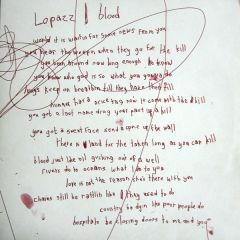 Lopazz | blood
would it is waitin for some news from you
you hear the weapon when they go for the kill
you been around now long enough to know
you know who god is so what you gonna do
dogs keep on breathin till they have their fill
gonna have a screwing now it comes with the kill
you got a last name drug your past up a hill
you got a sweet face send a come up the wall
there is land for the taken long as you can kill
blood just like oil gushing out of a well
rivers do to oceans what I do to you
love is not the reason she's there with you
chains still be rattlin like they used to do
country to dyin like poor people do
hospitals be closing doors to me and you